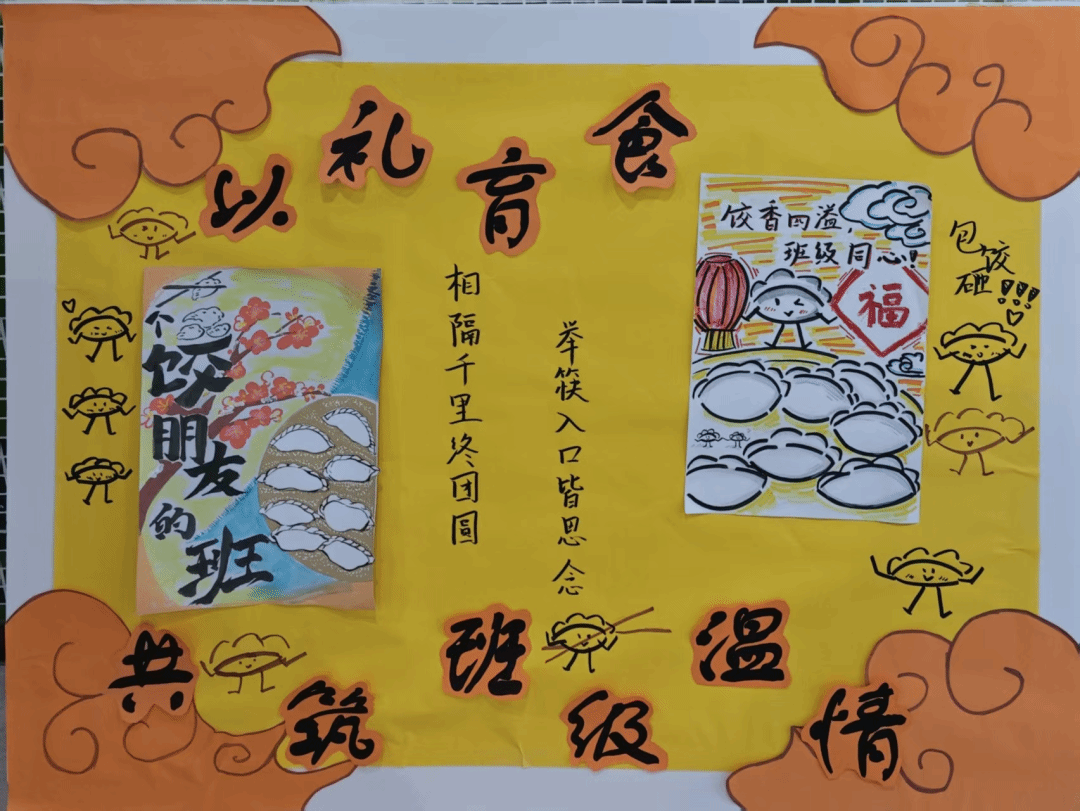 以礼育食
一个饺朋友的班
相隔千里终团圆
举筷入口皆思念
饺香四溢,
班级同心!
福
包饺砸!!!
共筑班级温情